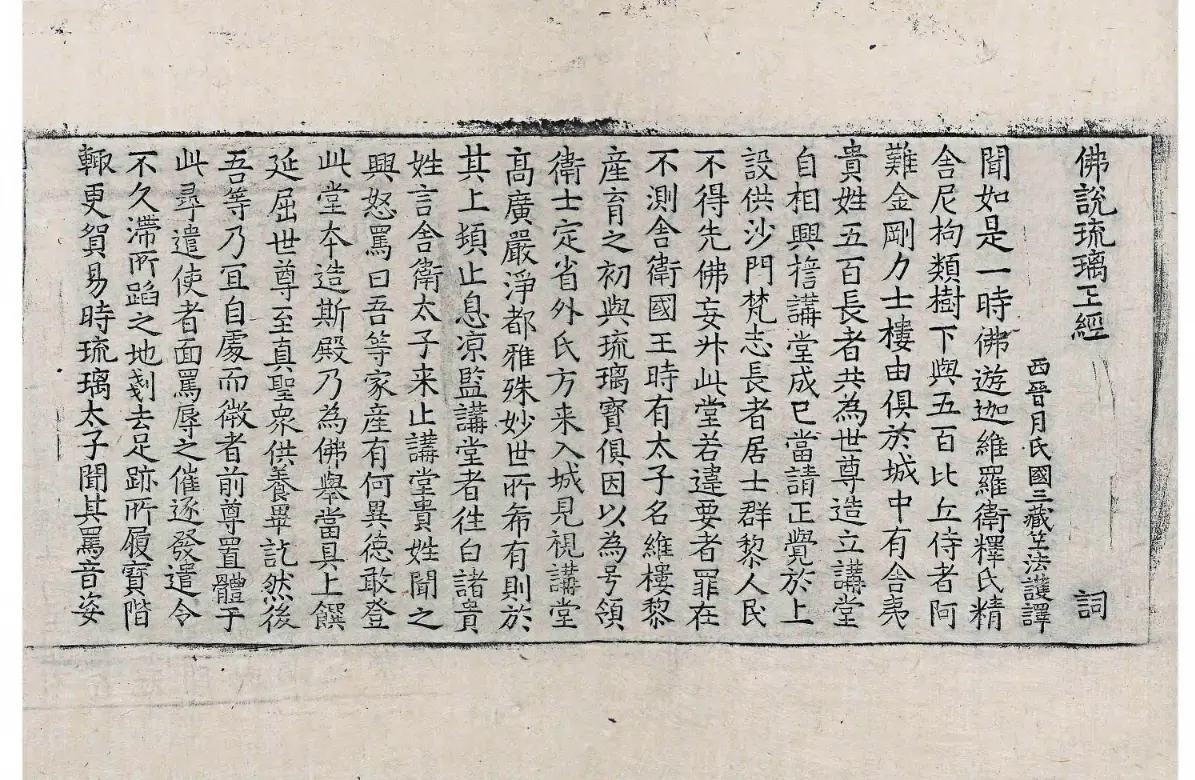 佛說琉璃王經 詞
西晉月氏國三藏竺法護譯
聞如是一時佛遊迦維羅衛釋氏精
舍尼拘類樹下與五百比丘侍者阿
難金剛力士樓由俱於城中有舍夷
貴姓五百長者共為世尊造立講堂
自相興擔講堂成已當請正覺於上
設供沙門梵志長者居士群黎人民
不得先佛妄升此堂若違要者罪在
不測舍衛國王時有太子名維樓黎
産育之初與琉璃寶俱因以為号領
衛士定省外氏方来入城見視講堂
髙廣嚴淨都雅殊妙世所希有則於
其上頓止息凉監講堂者徃白諸貴
姓言舍衛太子来止講堂貴姓聞之
興怒罵曰吾等家産有何異德敢登
此堂夲造斯殿乃為佛舉當具上饌
延屈世尊至真聖衆供養畢訖然後
吾等乃冝自處而微者前尊置體于
此尋遣使者面罵辱之催逐發遣令
不久滯所蹈之地剗去足跡所履寶階
輙更貿易時琉璃太子聞其罵音姿